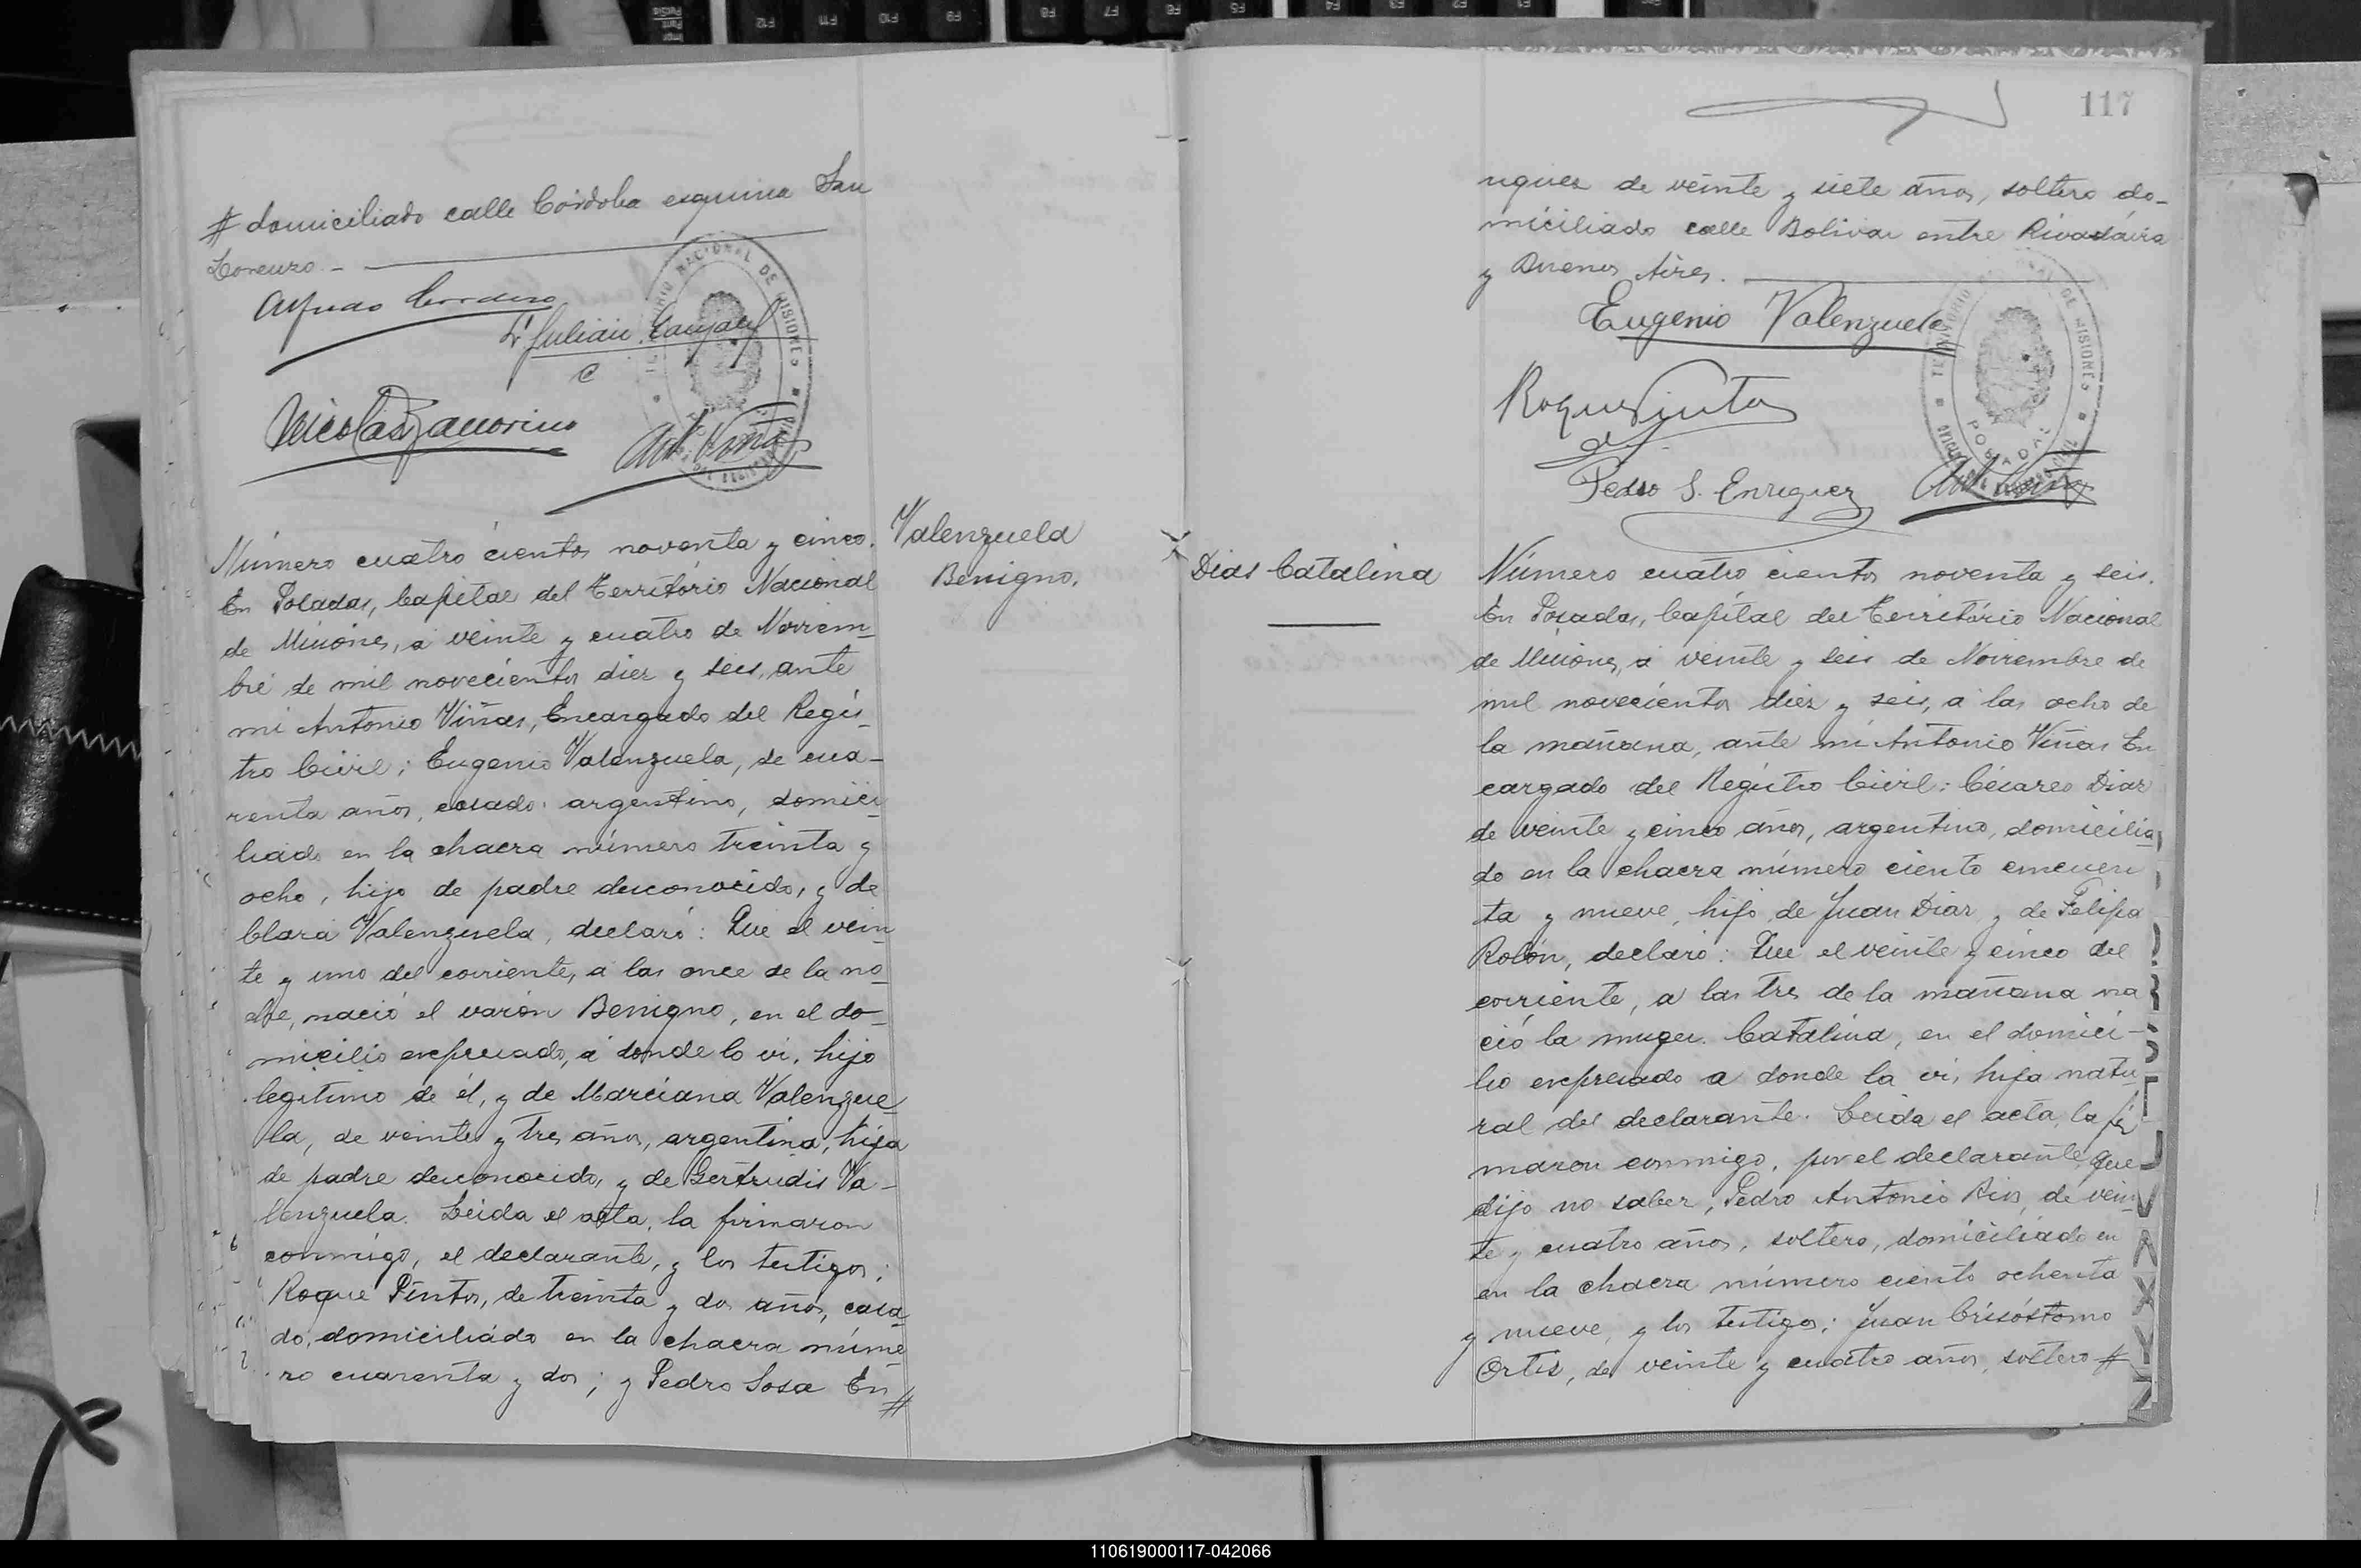 # domiciliado calle Córdoba esquina San
Lorenzo.-
Alfredo Cordero
Dr Julian
Nicolas Zamorino
Ant. Viñas
Número cuatro cientos noventa y cinco.
En Posadas, Capital del Territorio Nacional
de Misiones, á veinte y cuatro de Noviem-
bre de mil novecientos diez y seis, ante
mi Antonio Viñas, Encargado del Regis-
tro Civil; Eugenio Valenzuela, de cua-
renta años, casado, argentino, domici-
liado en la chacra número treinta y
ocho, hijo de padre desconocido, y de
Clara Valenzuela, declaró: Que el vein-
te y uno del corriente, a las once de la no-
che, nació el varón Benigno, en el do-
micilio expresado, á donde lo vi, hijo
legítimo de él, y de Marciana Valenzue-
la, de veinte y tres años, argentina, hija
de padre desconocido, y de Gertrudis Va-
lenzuela. Leida el acta, la firmaron
conmigo, el declarante, y los testigos:
Roque Pintos, de treinta y dos años, casa-
do, domiciliado en la chacra núme-
ro cuarenta y dos; y Pedro Sosa En
#
Valenzuela
Benigno.
117
riquez de veinte y siete años, soltero do-
miciliado calle Bolivar entre Rivadavia
y Buenos Aires.
Eugenio Valenzuela
Roque Pintos
Pedro S. Enriquez
Ant. Viñas
TERRITORIO NACIONAL DE MISIONES
POSADAS
Dias Catalina
Número cuatro cientos noventa y seis.
En Posadas, Capital del Territorio Nacional
de Misiones, á veinte y seis de Noviembre de
mil novecientos diez y seis, a las ocho de
la mañana, ante mi Antonio Viñas En
cargado del Registro Civil: Cesareo Diaz
de veinte y cinco años, argentino, domicilia-
do en la chacra número ciento cincuen
ta y nueve, hijo de Juan Diaz y de Felipa
Rolón, declaró: Que el veinte y cinco del
corriente, a las tres de la mañana na
ció la muger Catalina, en el domici-
lio expresado a donde la vi, hija natu-
ral del declarante. Leida el acta, la fir
maron conmigo, por el declarante que
dijo no saber, Pedro Antonio Rios, de vein-
te y cuatro años, soltero, domiciliado en
en la chacra número ciento ochenta
y nueve, y los testigos: Juan Crisóstomo
Ortis, de veinte y cuatro años, soltero #
110619000117-042066